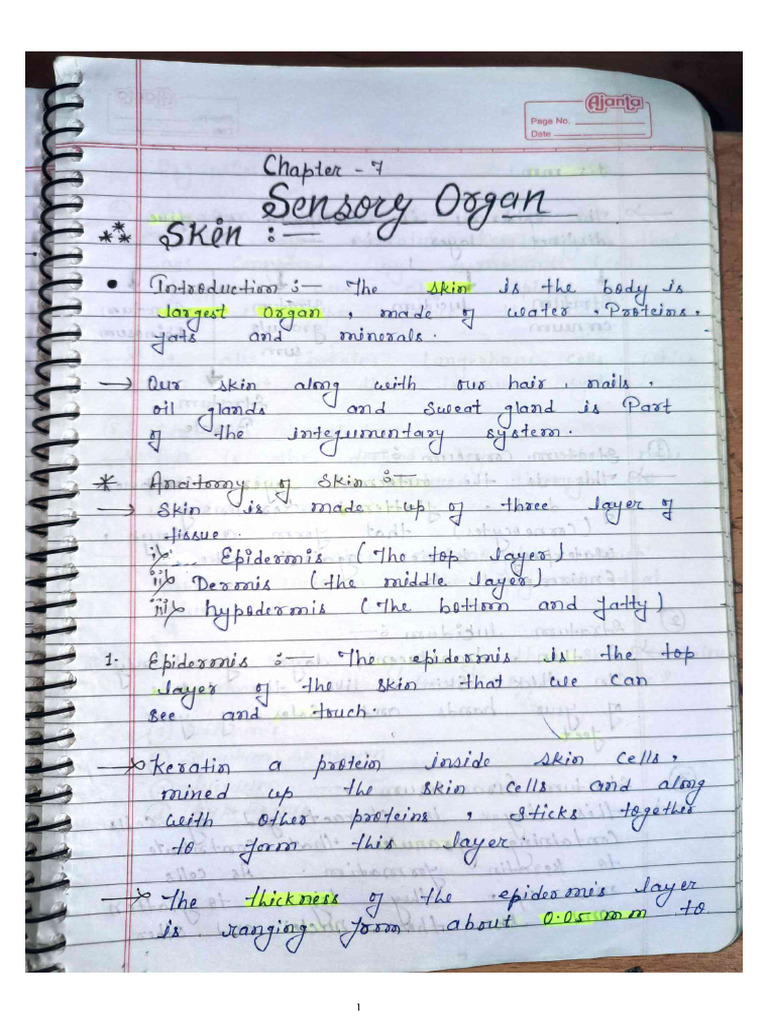 Ajanta
Page No.
Date
Chapter - 7
Sensory Organ
Skin :-
• Introduction :- The skin is the body is
largest organ, made of water, Proteins,
fats and minerals.
→ Our skin along with our hair, nails,
oil glands and sweat gland is Part
of the integumentary system.
* Anatomy of Skin :-
→ Skin is made up of three layer of
tissue.
i) Epidermis (The top layer)
ii) Dermis (the middle layer)
iii) hypodermis (The bottom and fatty)
1. Epidermis :- The epidermis is the top
layer of the skin that we can
see and touch.
→ Keratin a protein inside skin cells,
mined up the skin cells and along
with other proteins, sticks together
to form this layer
→ The thickness of the epidermis layer
is ranging form about 0.05 mm to
1